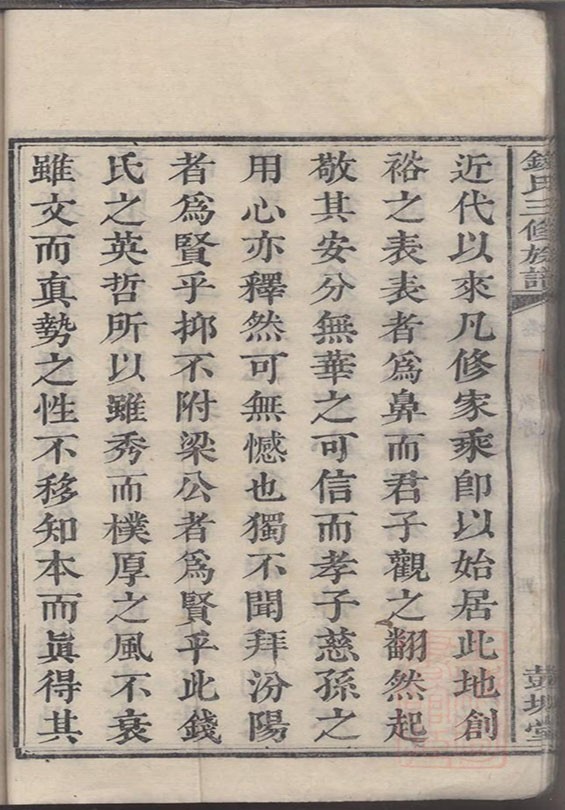 錢氏三修族譜
彭城堂
近代以來凡修家乘卽以始居此地創
裕之表表者爲鼻而君子觀之翻然起
敬其安分無華之可信而孝子慈孫之
用心亦釋然可無憾也獨不聞拜汾陽
者爲賢乎抑不附梁公者爲賢乎此錢
氏之英哲所以雖秀而樸厚之風不衰
雖文而真勢之性不移知本而眞得其